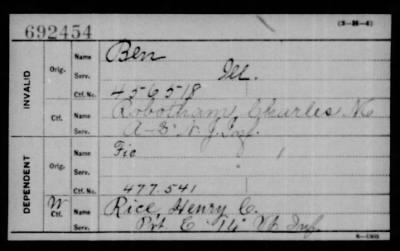 692454
(3-H-4)
INVALID
Orig.
Name
Ben
Serv.
Ill.
Ctf. No.
456518
Ctf.
Name
Robotham, Charles M.
Serv.
A-3" N. J. Inf.
DEPENDENT
Orig.
Name
Fic
Serv.
Ctf. No.
477.541
W
Ctf.
Name
Rice, Henry C.
Serv.
Pvt. E Vt. Inf.